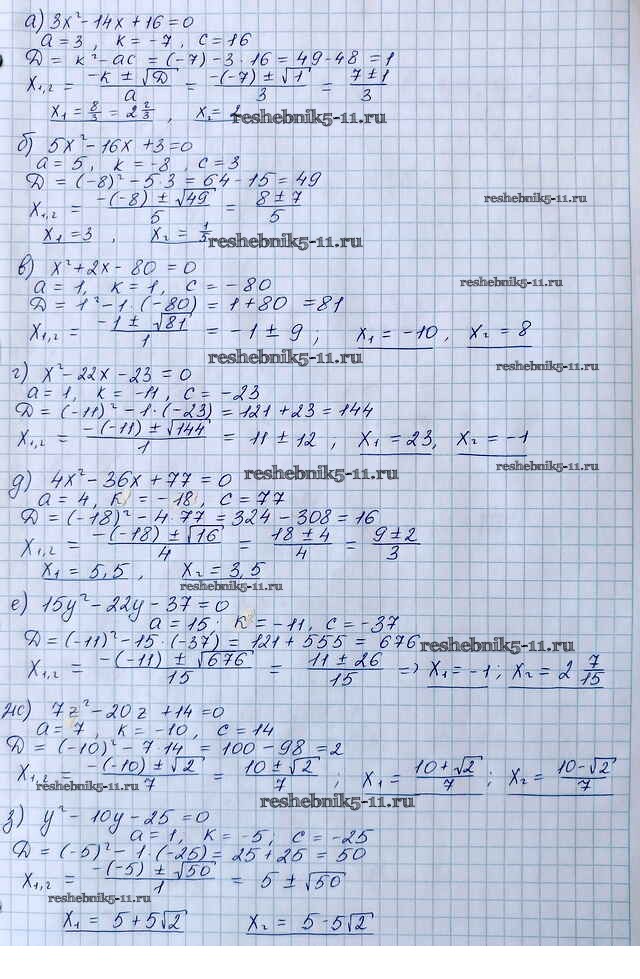 а) 3x² - 14x + 16 = 0
a = 3, k = -7, c = 16
D = k² - ac = (-7) - 3 · 16 = 49 - 48 = 1
x₁,₂ = (-k ± √D)/a = (-(-7) ± √1)/3 = (7 ± 1)/3
x₁ = 8/3 = 2 2/3, x₂ = 2
reshebnik5-11.ru
б) 5x² - 16x + 3 = 0
a = 5, k = -8, c = 3
D = (-8)² - 5·3 = 64 - 15 = 49
x₁,₂ = (-(-8) ± √49)/5 = (8 ± 7)/5
reshebnik5-11.ru
x₁ = 3, x₂ = 1/5
reshebnik5-11.ru
в) x² + 2x - 80 = 0
a = 1, k = 1, c = -80
reshebnik5-11.ru
D = 1² - 1 · (-80) = 1 + 80 = 81
x₁,₂ = (-1 ± √81)/1 = -1 ± 9; x₁ = -10, x₂ = 8
reshebnik5-11.ru
г) x² - 22x - 23 = 0
reshebnik5-11.ru
a = 1, k = -11, c = -23
D = (-11)² - 1 · (-23) = 121 + 23 = 144
x₁,₂ = (-(-11) ± √144)/1 = 11 ± 12, x₁ = 23, x₂ = -1
reshebnik5-11.ru
д) 4x² - 36x + 77 = 0
reshebnik5-11.ru
a = 4, k = -18, c = 77
D = (-18)² - 4 · 77 = 324 - 308 = 16
x₁,₂ = (-(-18) ± √16)/4 = (18 ± 4)/4 = (9 ± 2)/3
x₁ = 5,5, x₂ = 3,5
reshebnik5-11.ru
е) 15y² - 22y - 37 = 0
a = 15; k = -11, c = -37
D = (-11)² - 15 · (-37) = 121 + 555 = 676
reshebnik5-11.ru
x₁,₂ = (-(-11) ± √676)/15 = (11 ± 26)/15 => x₁ = -1; x₂ = 2 7/15
ж) 7z² - 20z + 14 = 0
a = 7, k = -10, c = 14
D = (-10)² - 7·14 = 100 - 98 = 2
x₁,₂ = (-(-10) ± √2)/7 = (10 ± √2)/7; x₁ = (10 + √2)/7; x₂ = (10 - √2)/7
reshebnik5-11.ru
reshebnik5-11.ru
з) y² - 10y - 25 = 0
a = 1, k = -5, c = -25
D = (-5)² - 1 · (-25) = 25 + 25 = 50
x₁,₂ = (-(-5) ± √50)/1 = 5 ± √50
reshebnik5-11.ru
x₁ = 5 + 5√2 x₂ = 5 - 5√2
reshebnik5-11.ru